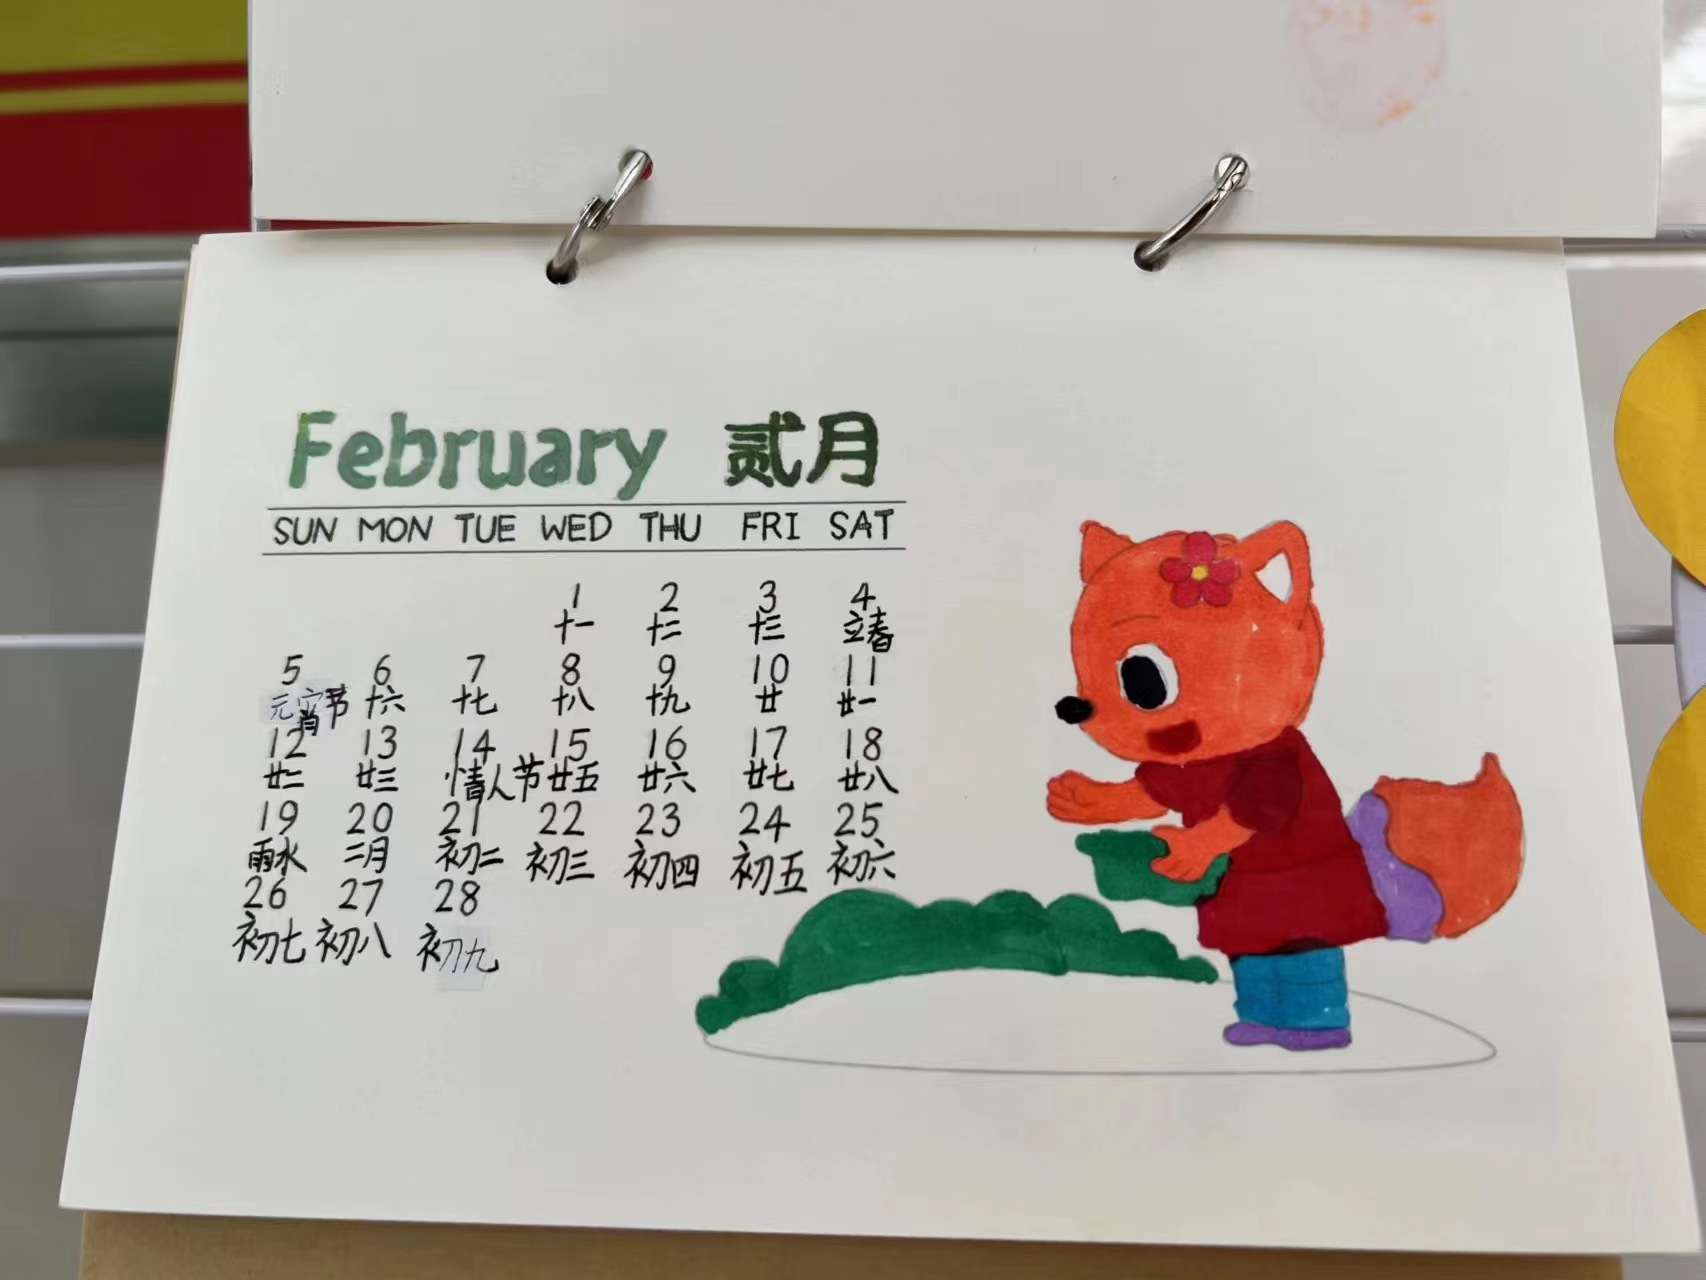 February 贰月
SUN MON TUE WED THU FRI SAT
1 2 3 4
十一 十二 十三 立春
5 6 7 8 9 10 11
元宵节 十六 十七 十八 十九 廿 廿一
12 13 14 15 16 17 18
廿二 廿三 情人节 廿五 廿六 廿七 廿八
19 20 21 22 23 24 25
雨水 二月 初二 初三 初四 初五 初六
26 27 28
初七 初八 初九